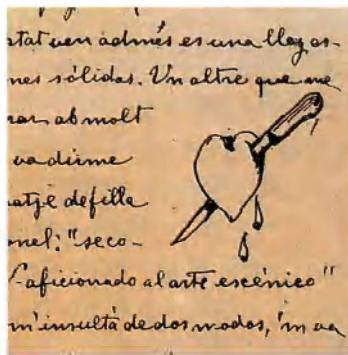 tat uen admés es una lleg as-
nes sólidas. Un altre que me
rar ab molt
va dirme
atje de filla
onel; "seco-
aficionado al arte escénico"
m'insultá de dos modos, 'm va